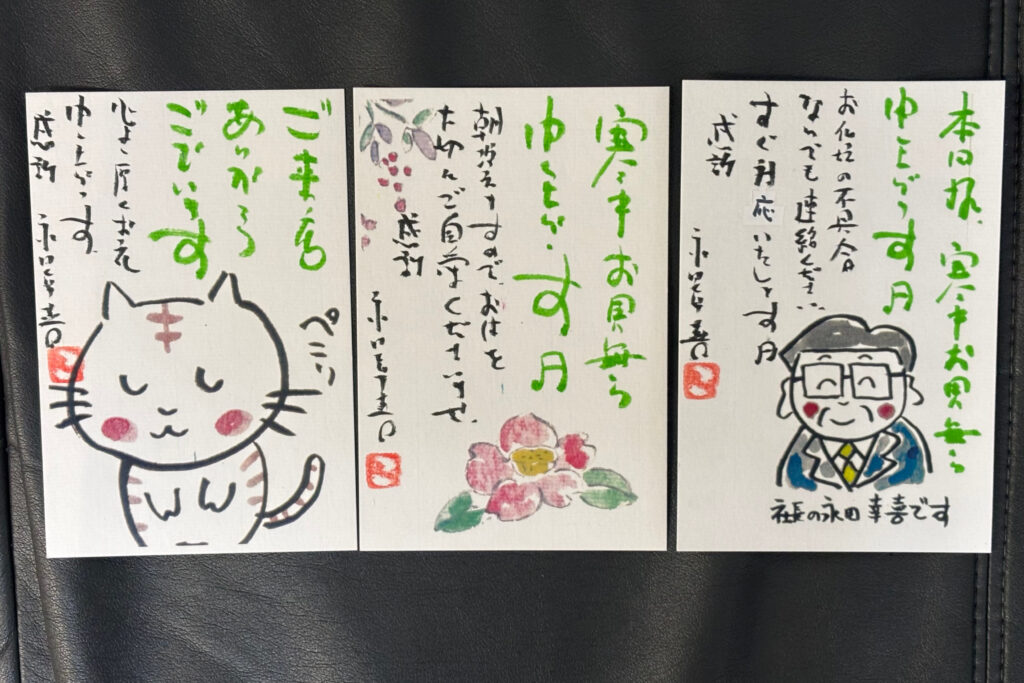 ご来店
ありがとう
ございます
心より厚くお礼
申し上げます
感謝
永田幸喜
ペこり
寒中お見舞い
申し上げます
朝冷えますので、お体を
大切にご自愛くださいませ
感謝
永田幸喜
寒中お見舞い
申し上げます
お仏壇の不具合
なんでも連絡ください
すぐ対応いたします
感謝
永田幸喜
社長の永田幸喜です